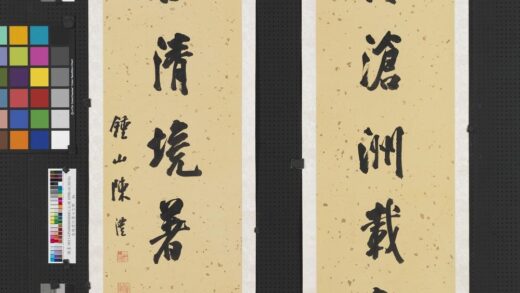 滄洲載
清境著
鍾山陳澧